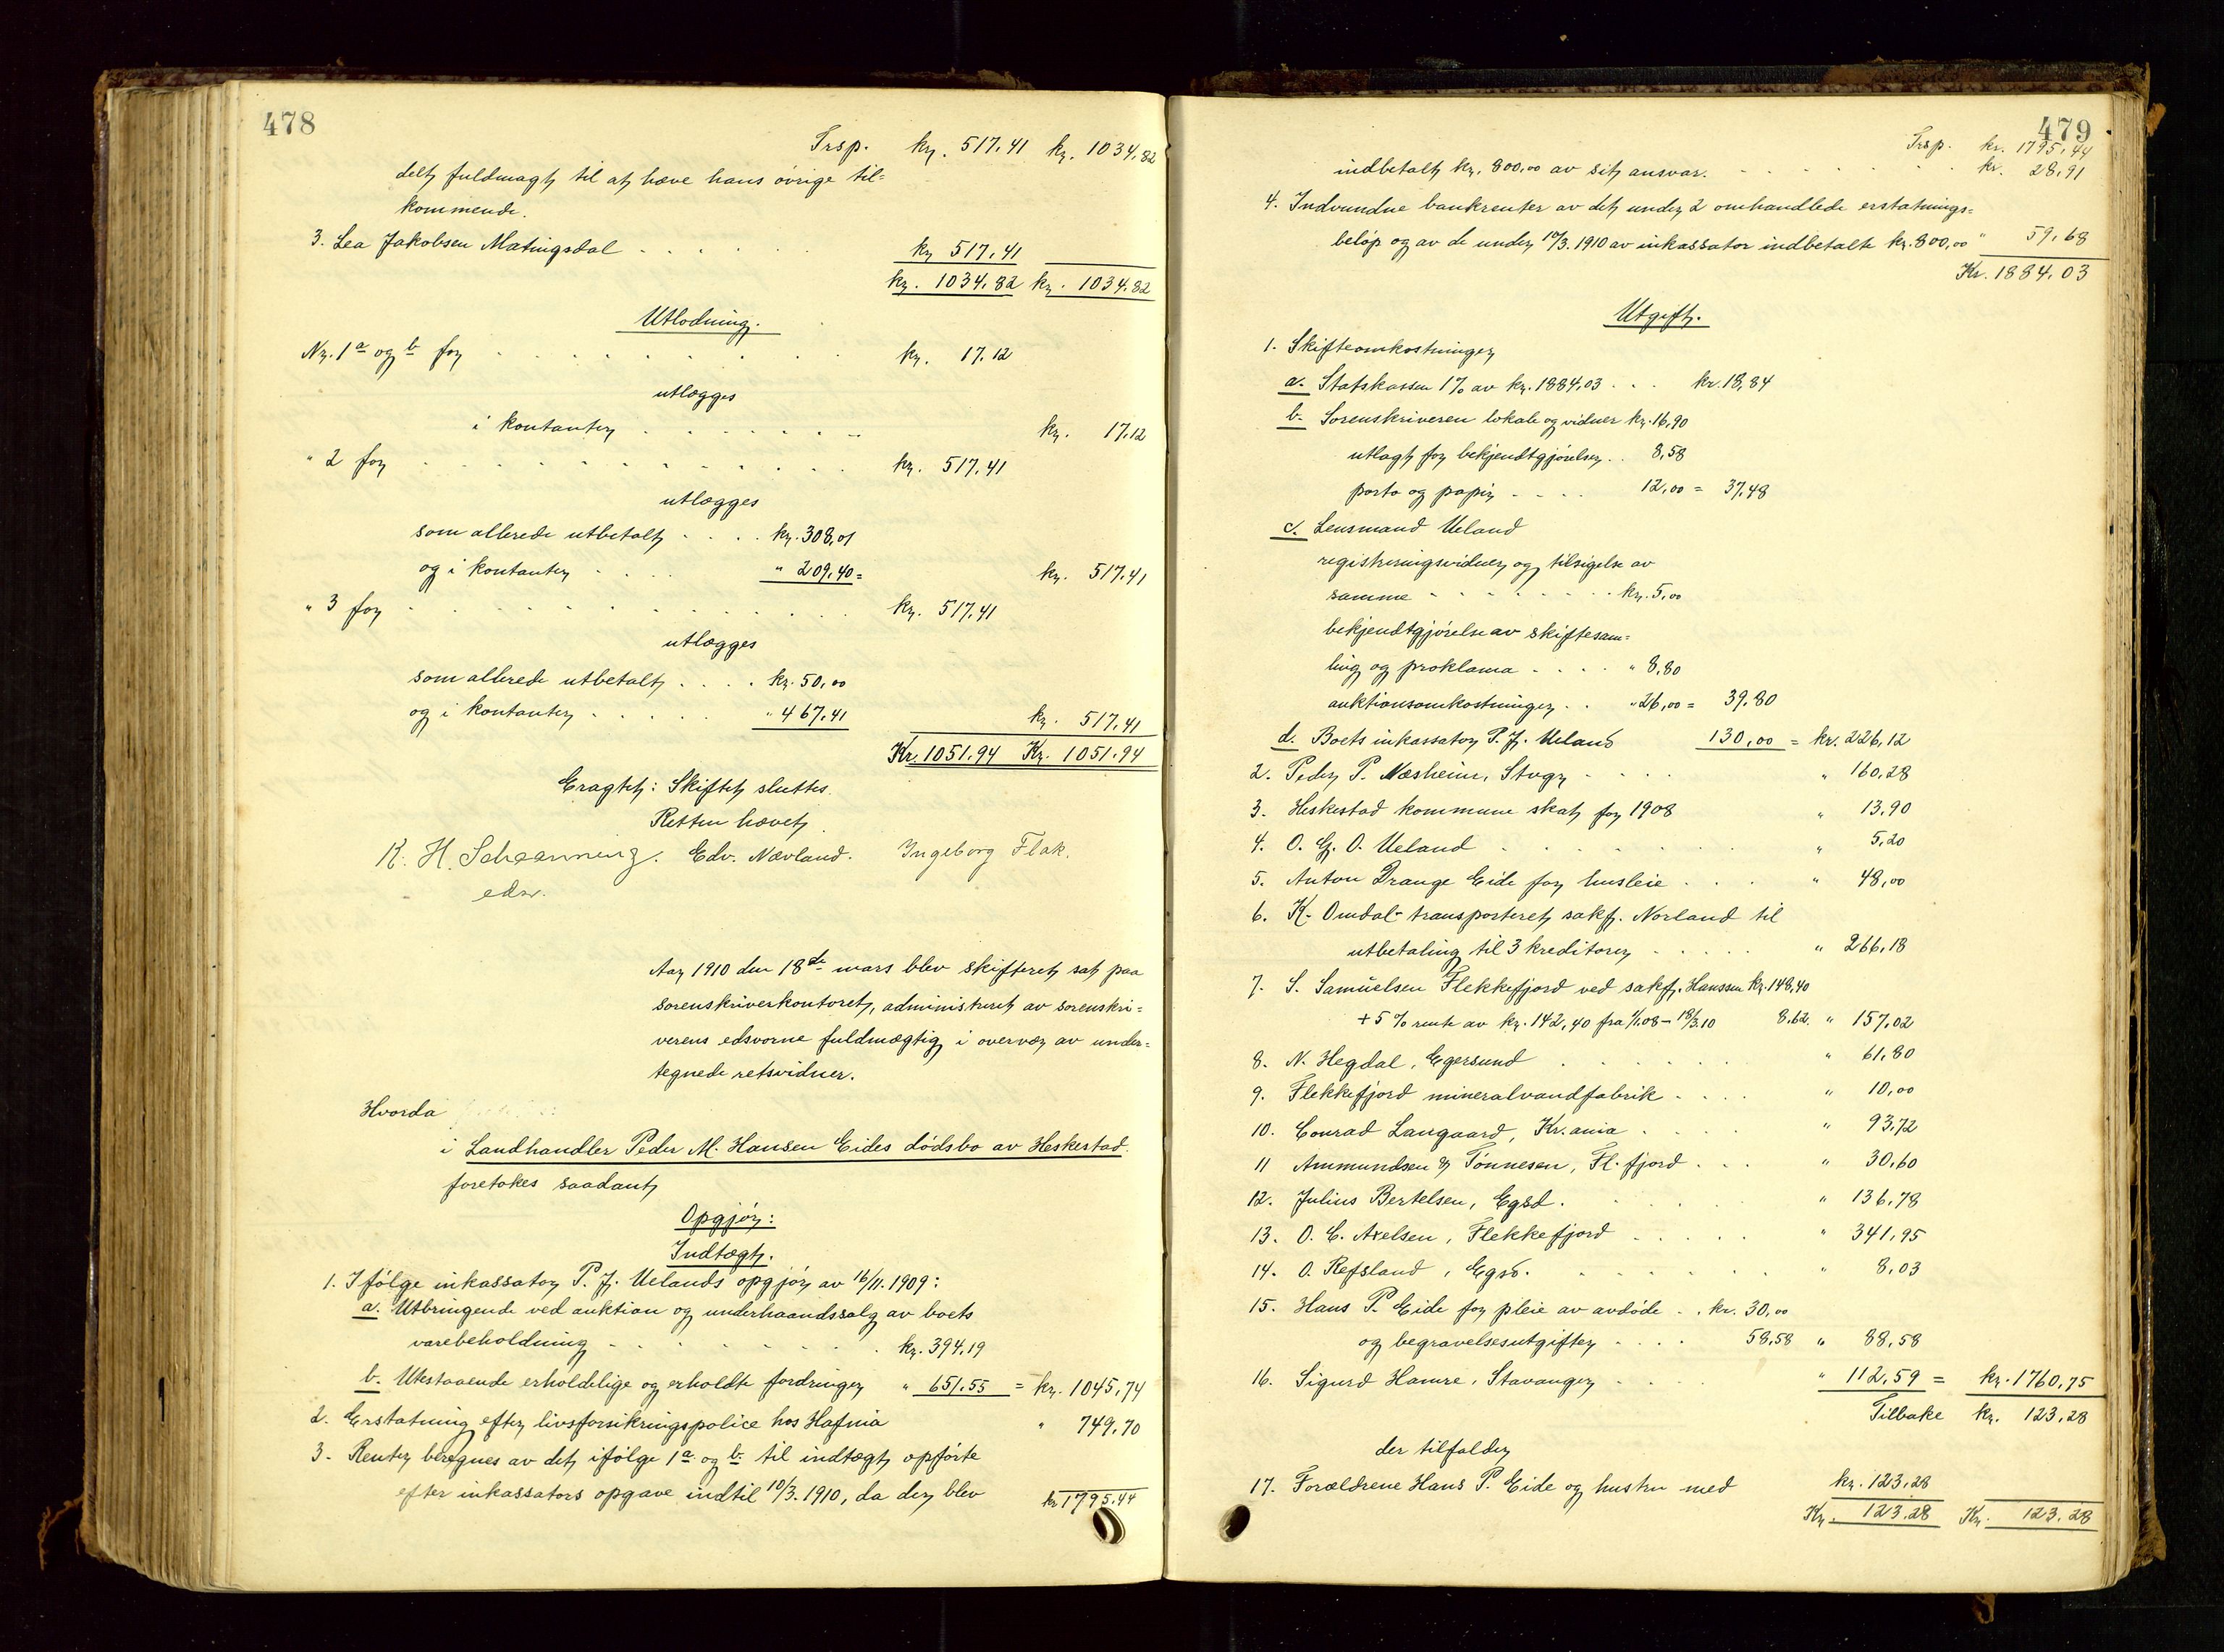 478
Trsp. kr. 517.41 kr. 1034.82
delt fuldmagt til at hæve hans øvrige til=
kommende.
3. Lea Jakobsen Matingsdal . . . . kr 517.41
kr. 1034.82 kr. 1034.82
Utlodning.
Nr. 1a og b for . . . . kr. 17.12
utlægges
i kontanter . . . . kr. 17.12
" 2 for . . . . kr. 517.41
utlægges
som allerede utbetalt . . . . kr. 308,01
og i kontanter . . . . " 209.40 = kr. 517.41
" 3 for . . . . kr. 517.41
utlægges
som allerede utbetalt . . . . kr. 50,00
og i kontanter . . . . " 467.41 kr. 517.41
Kr. 1051.94 Kr. 1051.94
Eragtet: Skiftet sluttes.
Retten hævet.
K. H. Scheanning. Edv. Nævland. Ingeborg Flak.
edsv.
Aar 1910 den 18de mars blev skifteret sat paa
sorenskriverkontoret, administreret av sorenskri=
verens edsvorne fuldmægtig i overvær av under=
tegnede retsvidner.
Hvorda
i Landhandler Peder M. Hansen Eides dødsbo av Heskestad.
foretokes saadant
Opgjør:
Indtægt.
1. Ifølge inkassator P. J. Uelands opgjør av 16/11. 1909:
a. Utbringende ved auktion og underhaandssalg av boets
varebeholdning . . . . kr. 394.19
b. Utestaaende erholdelige og erholdte fordringer " 651.55 = kr. 1045,74
2. Erstatning efter livsforsikringspolice hos Hafnia " 749.70
3. Renter beregnes av det ifølge 1a og b til indtægt opførte
efter inkassators opgave indtil 10/3. 1910, da der blev kr 1795.44
479
Trsp. kr. 1795,44
indbetalt kr. 800,00 av sit ansvar. . . . . kr. 28,91
4. Indvundne bankrenter av det under 2 omhandlede erstatnings=
beløp og av de under 10/3. 1910 av inkassator indbetalte kr. 800,00 " 59,68
Kr. 1884.03
Utgift.
1. Skifteomkostninger
a. Statskassen 1% av kr. 1884,03 . . . kr. 18,84
b. Sorenskriveren lokale og vidner kr. 16,90
utlagt for bekjendtgjørelser . . 8,58
porto og papir . . . . 12,00 = 37,48
c. Lensmand Ueland
registreringsvidner og tilsigelse av
samme . . . . kr. 5,00
bekjendtgjørelse av skiftesam=
ling og proklama . . . . " 8,80
auktionsomkostninger . . " 26,00 = 39.80
d. Boets inkassator P. J. Ueland 130,00 = kr. 226,12
2. Peder P. Næsheim, Stvgr . . . . " 160,28
3. Heskestad kommune skat for 1908 " 13,90
4. O. G. O. Ueland . . . . " 5,20
5. Anton Drange Eide for husleie . . . " 48,00
6. K. Omdal - transporteret sakf. Norland til
utbetaling til 3 kreditorer . . . . " 266,18
7. S. Samuelsen Flekkefjord ved sakf. Hanssen kr. 148,40
+ 5% rente av kr. 142,40 fra 1/1.08 - 18/3.10 8.62. " 157,02
8. N. Hegdal, Egersund . . . . " 61,80
9. Flekkefjord mineralvandfabrik . . . . " 10,00
10. Conrad Langaard, Kr.ania . . . . " 93,72
11 Ammundsen & Tønnesen, Fl.fjord . . . " 30,60
12. Julius Bertelsen, Egsd. . . . . " 136,78
13. O. C. Axelsen, Flekkefjord . . . . " 341,95
14. O. Refsland, Egsd. . . . . " 8,03
15. Hans P. Eide for pleie av avdøde . . kr. 30,00
og begravelsesutgifter . . . . 58,58 " 88,58
16. Sigurd Hamre, Stavanger . . . . " 112,59 = kr. 1760,75
Tilbake kr. 123,28
der tilfalder
17. Forældrene Hans P. Eide og hustru med kr. 123,28
Kr. 123,28 Kr. 123,28